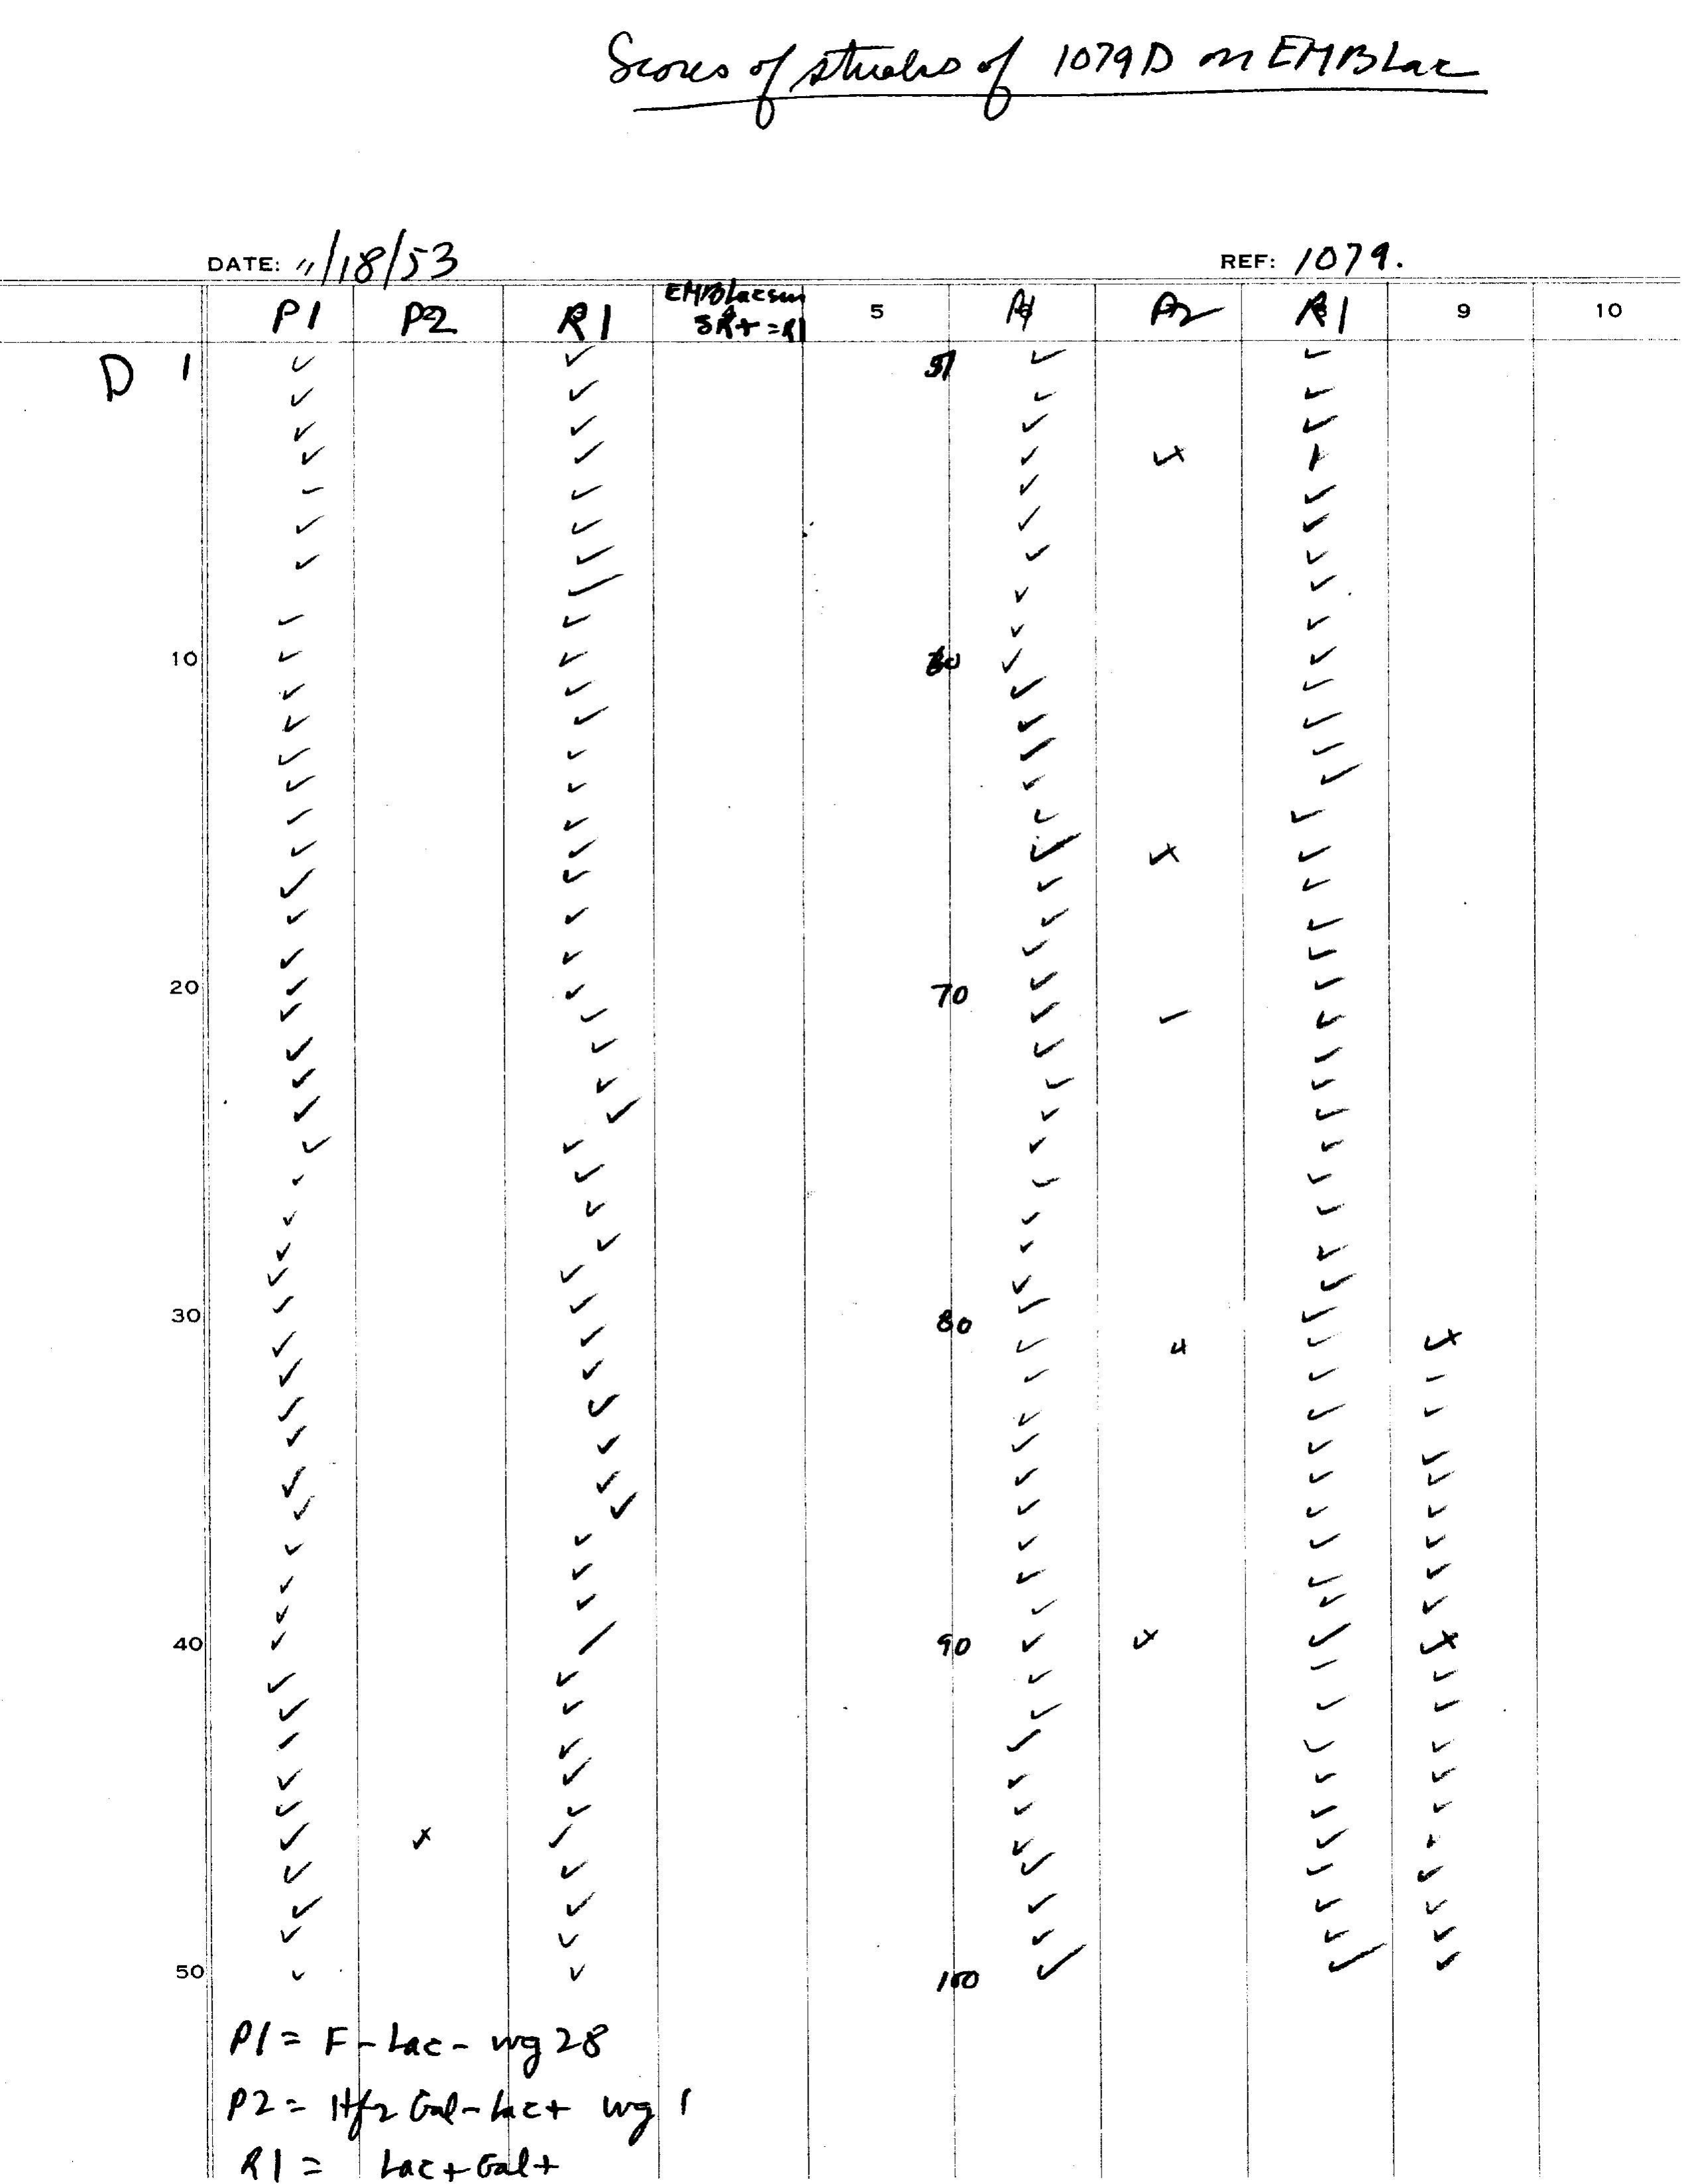 Scores of streaks of 1079D on EMBLac
DATE: 11/18/53 REF: 1079.
P1 P2 R1 EMBLacsm 5 P1 P2 R1 9 10
SR+ = R1
D 1 51
10 60
20 70
30 80
40 90
50 100
P1 = F- Lac- wg 28
P2 = Hfr Gal- Lac+ wg 1
R1 = Lac+ Gal+